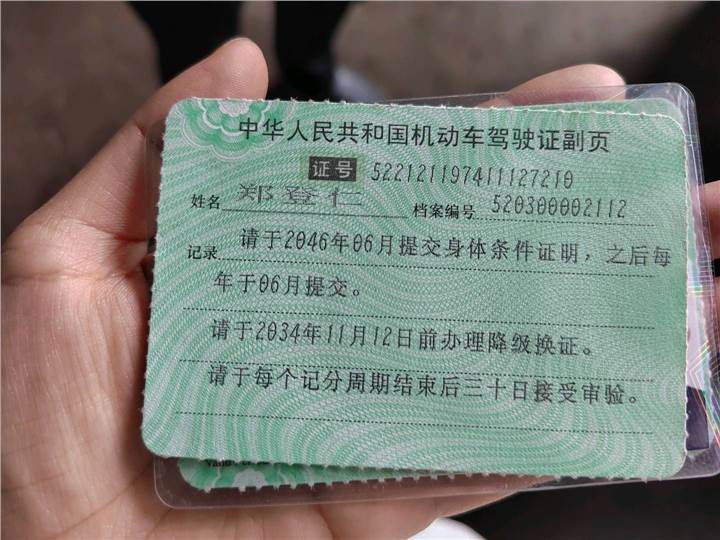 中华人民共和国机动车驾驶证副页
证号 522121197411127210
姓名 郑登仁 档案编号 520300002112
记录 请于2046年06月提交身体条件证明，之后每
年于06月提交。
请于2034年11月12日前办理降级换证。
请于每个记分周期结束后三十日接受审验。